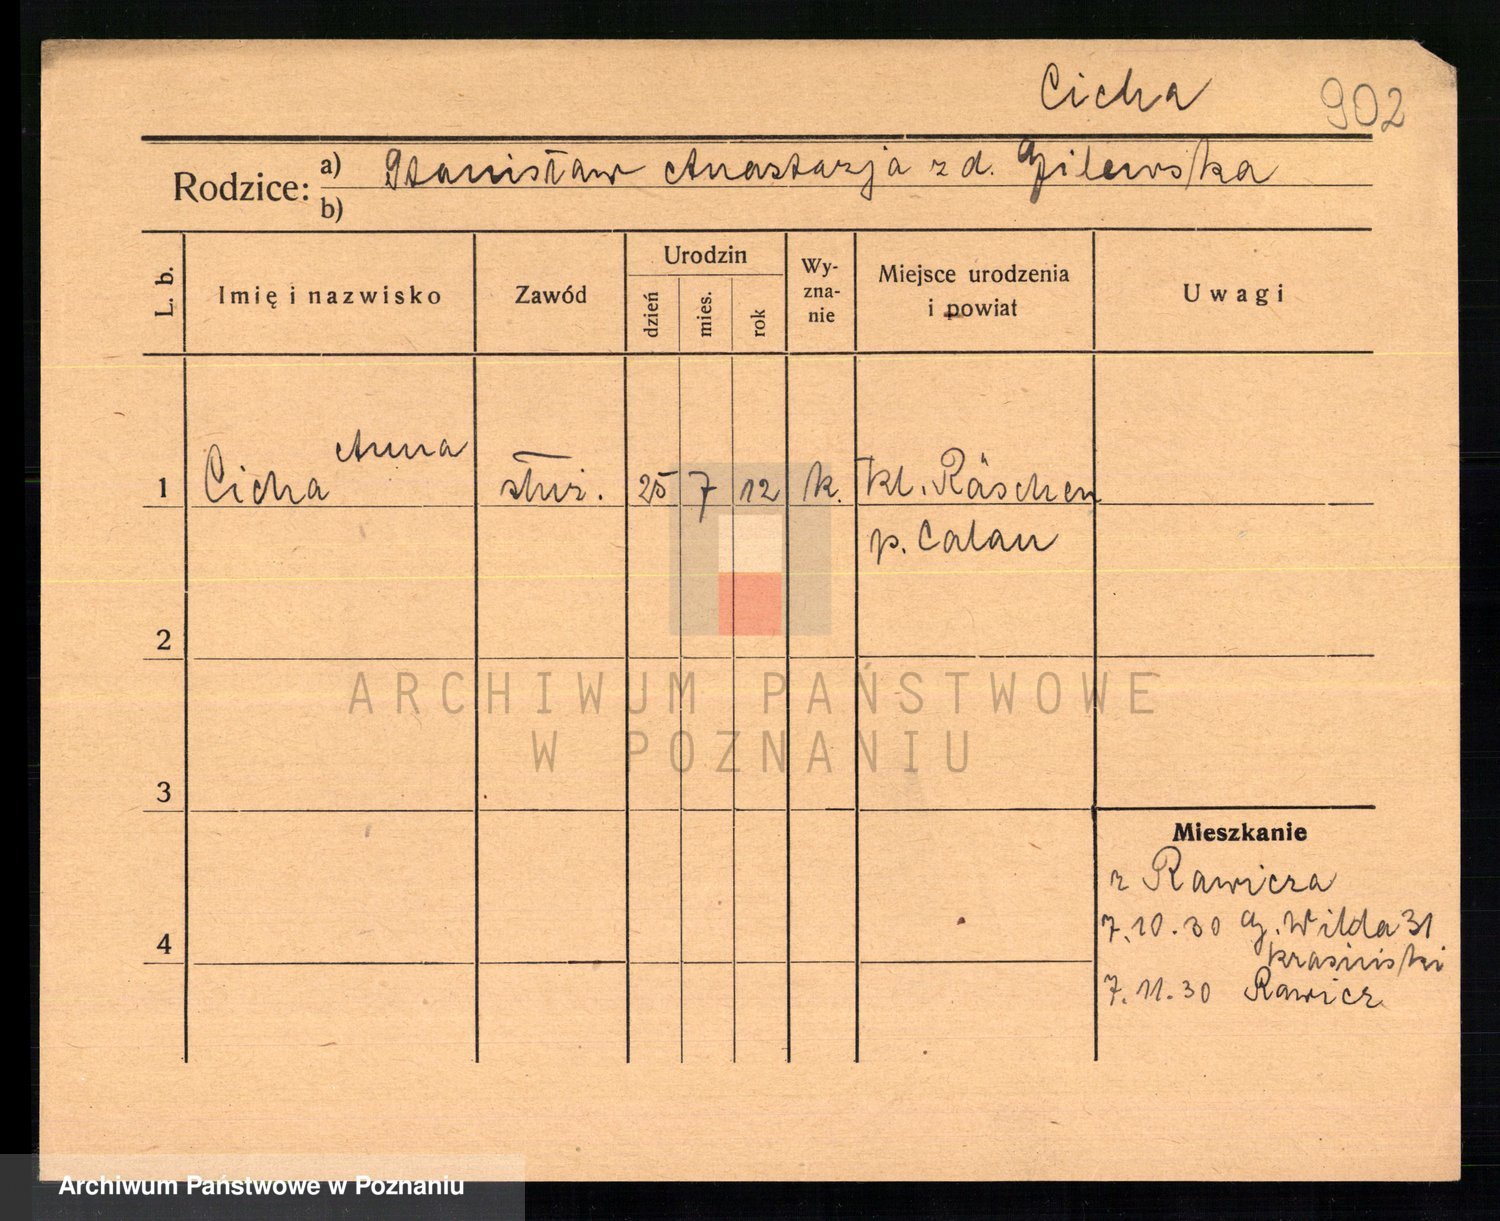 Cicha 902
Rodzice: a) Stanisław Anastazja z d. Gilewska
b)
L. b. Imię i nazwisko Zawód Urodzin dzień mies. rok Wy-zna-nie Miejsce urodzenia i powiat Uwagi
Anna
1 Cicha służ. 25 7 12 k. Kl. Räschen
p. Calau
2
ARCHIWUM PAŃSTWOWE
W POZNANIU
3
Mieszkanie
z Rawicza
7.10.30 G. Wilda 31
Krasiński
4
7.11.30 Rawicz
Archiwum Państwowe w Poznaniu